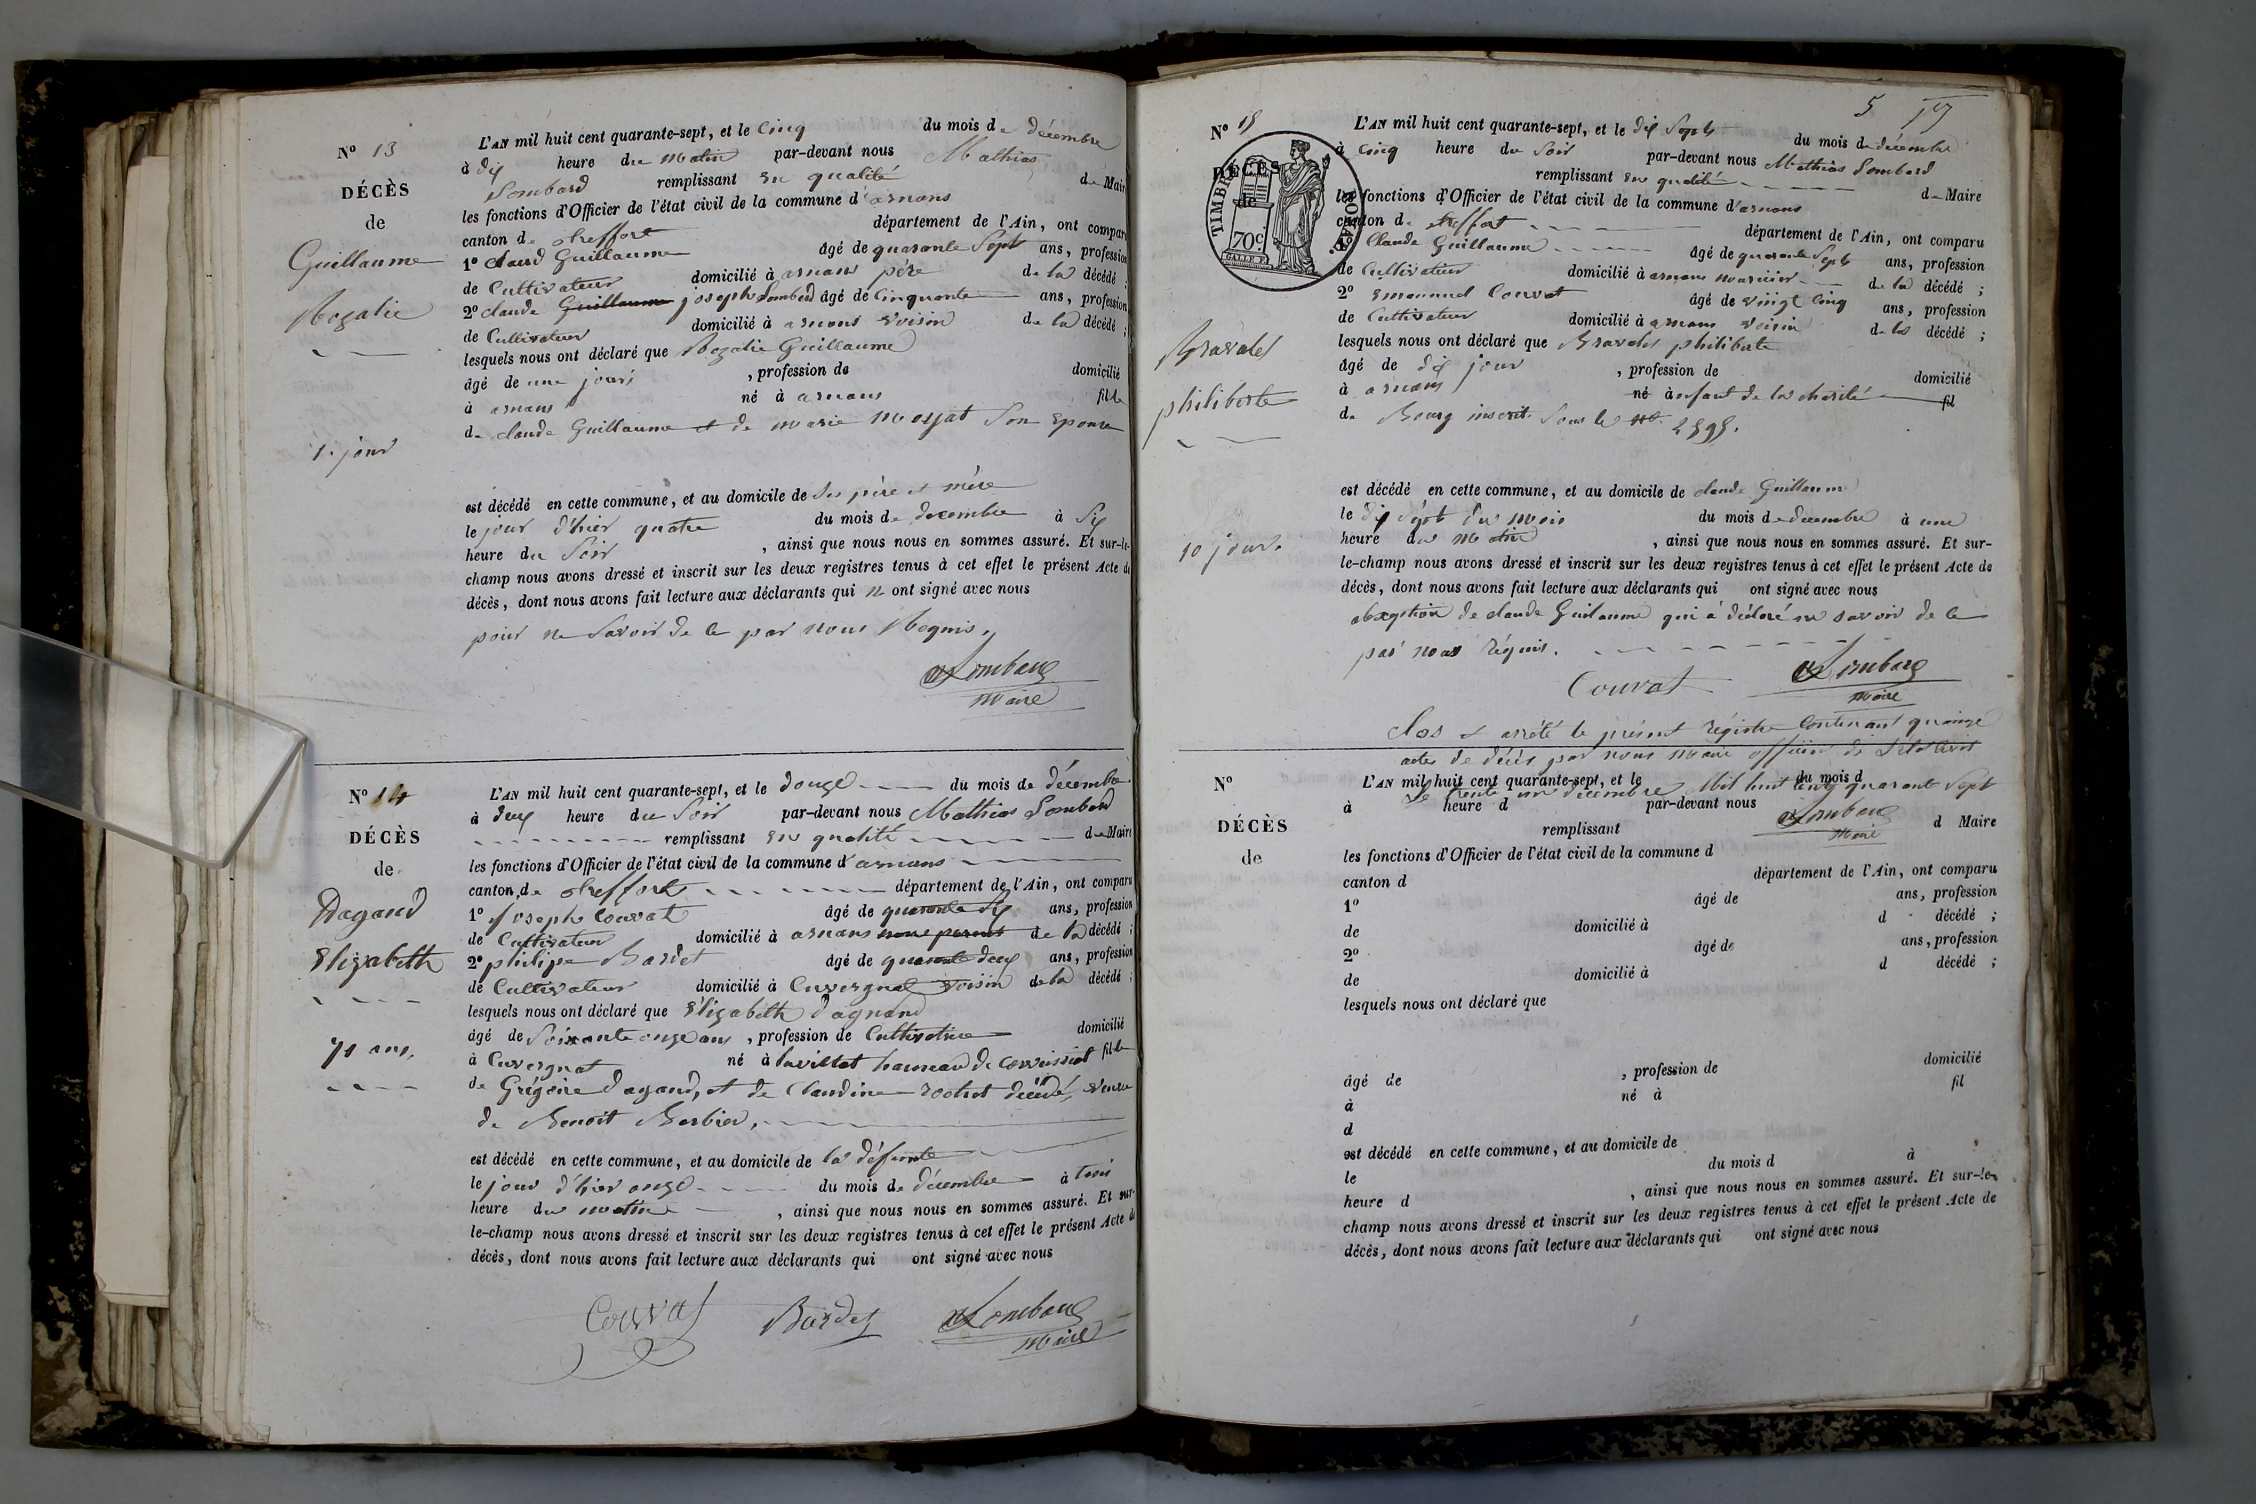 N° 13
DÉCÈS
de
Guillaume
Rozalie
1. jour
L'AN mil huit cent quarante-sept, et le Cinq du mois de décembre
à dix heure du matin par-devant nous Mathias
Lombard remplissant en qualité de Maire
les fonctions d'Officier de l'état civil de la commune d'arnans
canton de treffort département de l'Ain, ont comparu
1° Claud Guillaume âgé de quarante Sept ans, profession
de Cultivateur domicilié à arnans père de la décédé ;
2° claude Guillaume joseph Lombard âgé de Cinquante ans, profession
de Cultivateur domicilié à arnans voisin de la décédé ;
lesquels nous ont déclaré que Rozalie Guillaume
âgé de une jours , profession de domicilié
à arnans né à arnans fille
de claude Guillaume et de marie Son épouse
est décédé en cette commune, et au domicile de Ses père et mère
le jour d'hier quatre du mois de decembre à Six
heure du Soir , ainsi que nous nous en sommes assuré. Et sur-le-
champ nous avons dressé et inscrit sur les deux registres tenus à cet effet le présent Acte de
décès, dont nous avons fait lecture aux déclarants qui n ont signé avec nous
pour ne Savoir de le par nous Requis,
Lombard
Maire
N° 14
DÉCÈS
de
Dagand
Elizabeth
71 ans.
L'AN mil huit cent quarante-sept, et le douze du mois de décembre
à deux heure du Soir par-devant nous Mathias Lombard
remplissant en qualité de Maire
les fonctions d'Officier de l'état civil de la commune d'arnans
canton de treffort département de l'Ain, ont comparu
1° Joseph Couvat âgé de quarante Six ans, profession
de Cultivateur domicilié à arnans non parent de la décédé ;
2° philipe Bardet âgé de quarante deux ans, profession
de Cultivateur domicilié à Cuvergnat voisin de la décédé ;
lesquels nous ont déclaré que Elizabeth Dagand
âgé de Soixante onze ans , profession de Cultivatrice domicilié
à Cuvergnat né à hameau de fille
de Grégoire Dagand, et de Claudine rochet décédés, veuve
de Benoit Barbier,
est décédé en cette commune, et au domicile de la défunte
le jour d'hier onze du mois de décembre à trois
heure du matin , ainsi que nous nous en sommes assuré. Et sur-
le-champ nous avons dressé et inscrit sur les deux registres tenus à cet effet le présent Acte de
décès, dont nous avons fait lecture aux déclarants qui ont signé avec nous
Couvat Bardet Lombard
Maire
5
N° 15
DÉCÈS
de
TIMBRE ROYAL.
70 c.
Gravalet
philiberte
10 jour.
L'AN mil huit cent quarante-sept, et le dix Sept du mois de décembre
à Cinq heure du Soir par-devant nous Mathias Lombard
remplissant en qualité de Maire
les fonctions d'Officier de l'état civil de la commune d'arnans
canton de treffort département de l'Ain, ont comparu
1° Claude Guillaume âgé de quarante Sept ans, profession
de Cultivateur domicilié à arnans nouricier de la décédé ;
2° Emanuel Couvat âgé de vingt Cinq ans, profession
de Cultivateur domicilié à arnans voisin de la décédé ;
lesquels nous ont déclaré que philiberte
âgé de dix jour , profession de domicilié
à arnans né à enfant de la charité fil
de Bourg inscrit Sous le n°
est décédé en cette commune, et au domicile de claude Guillaume
le dix Sept du mois du mois de decembre à une
heure du matin , ainsi que nous nous en sommes assuré. Et sur-
le-champ nous avons dressé et inscrit sur les deux registres tenus à cet effet le présent Acte de
décès, dont nous avons fait lecture aux déclarants qui ont signé avec nous
abxeption de claude Guilaume qui à déclaré ne savoir de le
par nous réquis.
Couvat Lombard
Maire
Clos et arrêté le présent régistre Contenant quinze
actes de décès par nous maire officier de l'état Civil
le trente un décembre Mil huit cent quarant Sept
Lombard
Maire
N°
DÉCÈS
de
L'AN mil huit cent quarante-sept, et le du mois d
à heure d par-devant nous
remplissant d Maire
les fonctions d'Officier de l'état civil de la commune d
canton d département de l'Ain, ont comparu
1° âgé de ans, profession
de domicilié à d décédé ;
2° âgé de ans, profession
de domicilié à d décédé ;
lesquels nous ont déclaré que
âgé de , profession de domicilié
à né à fil
d
est décédé en cette commune, et au domicile de
le du mois d à
heure d , ainsi que nous nous en sommes assuré. Et sur-le-
champ nous avons dressé et inscrit sur les deux registres tenus à cet effet le présent Acte de
décès, dont nous avons fait lecture aux déclarants qui ont signé avec nous